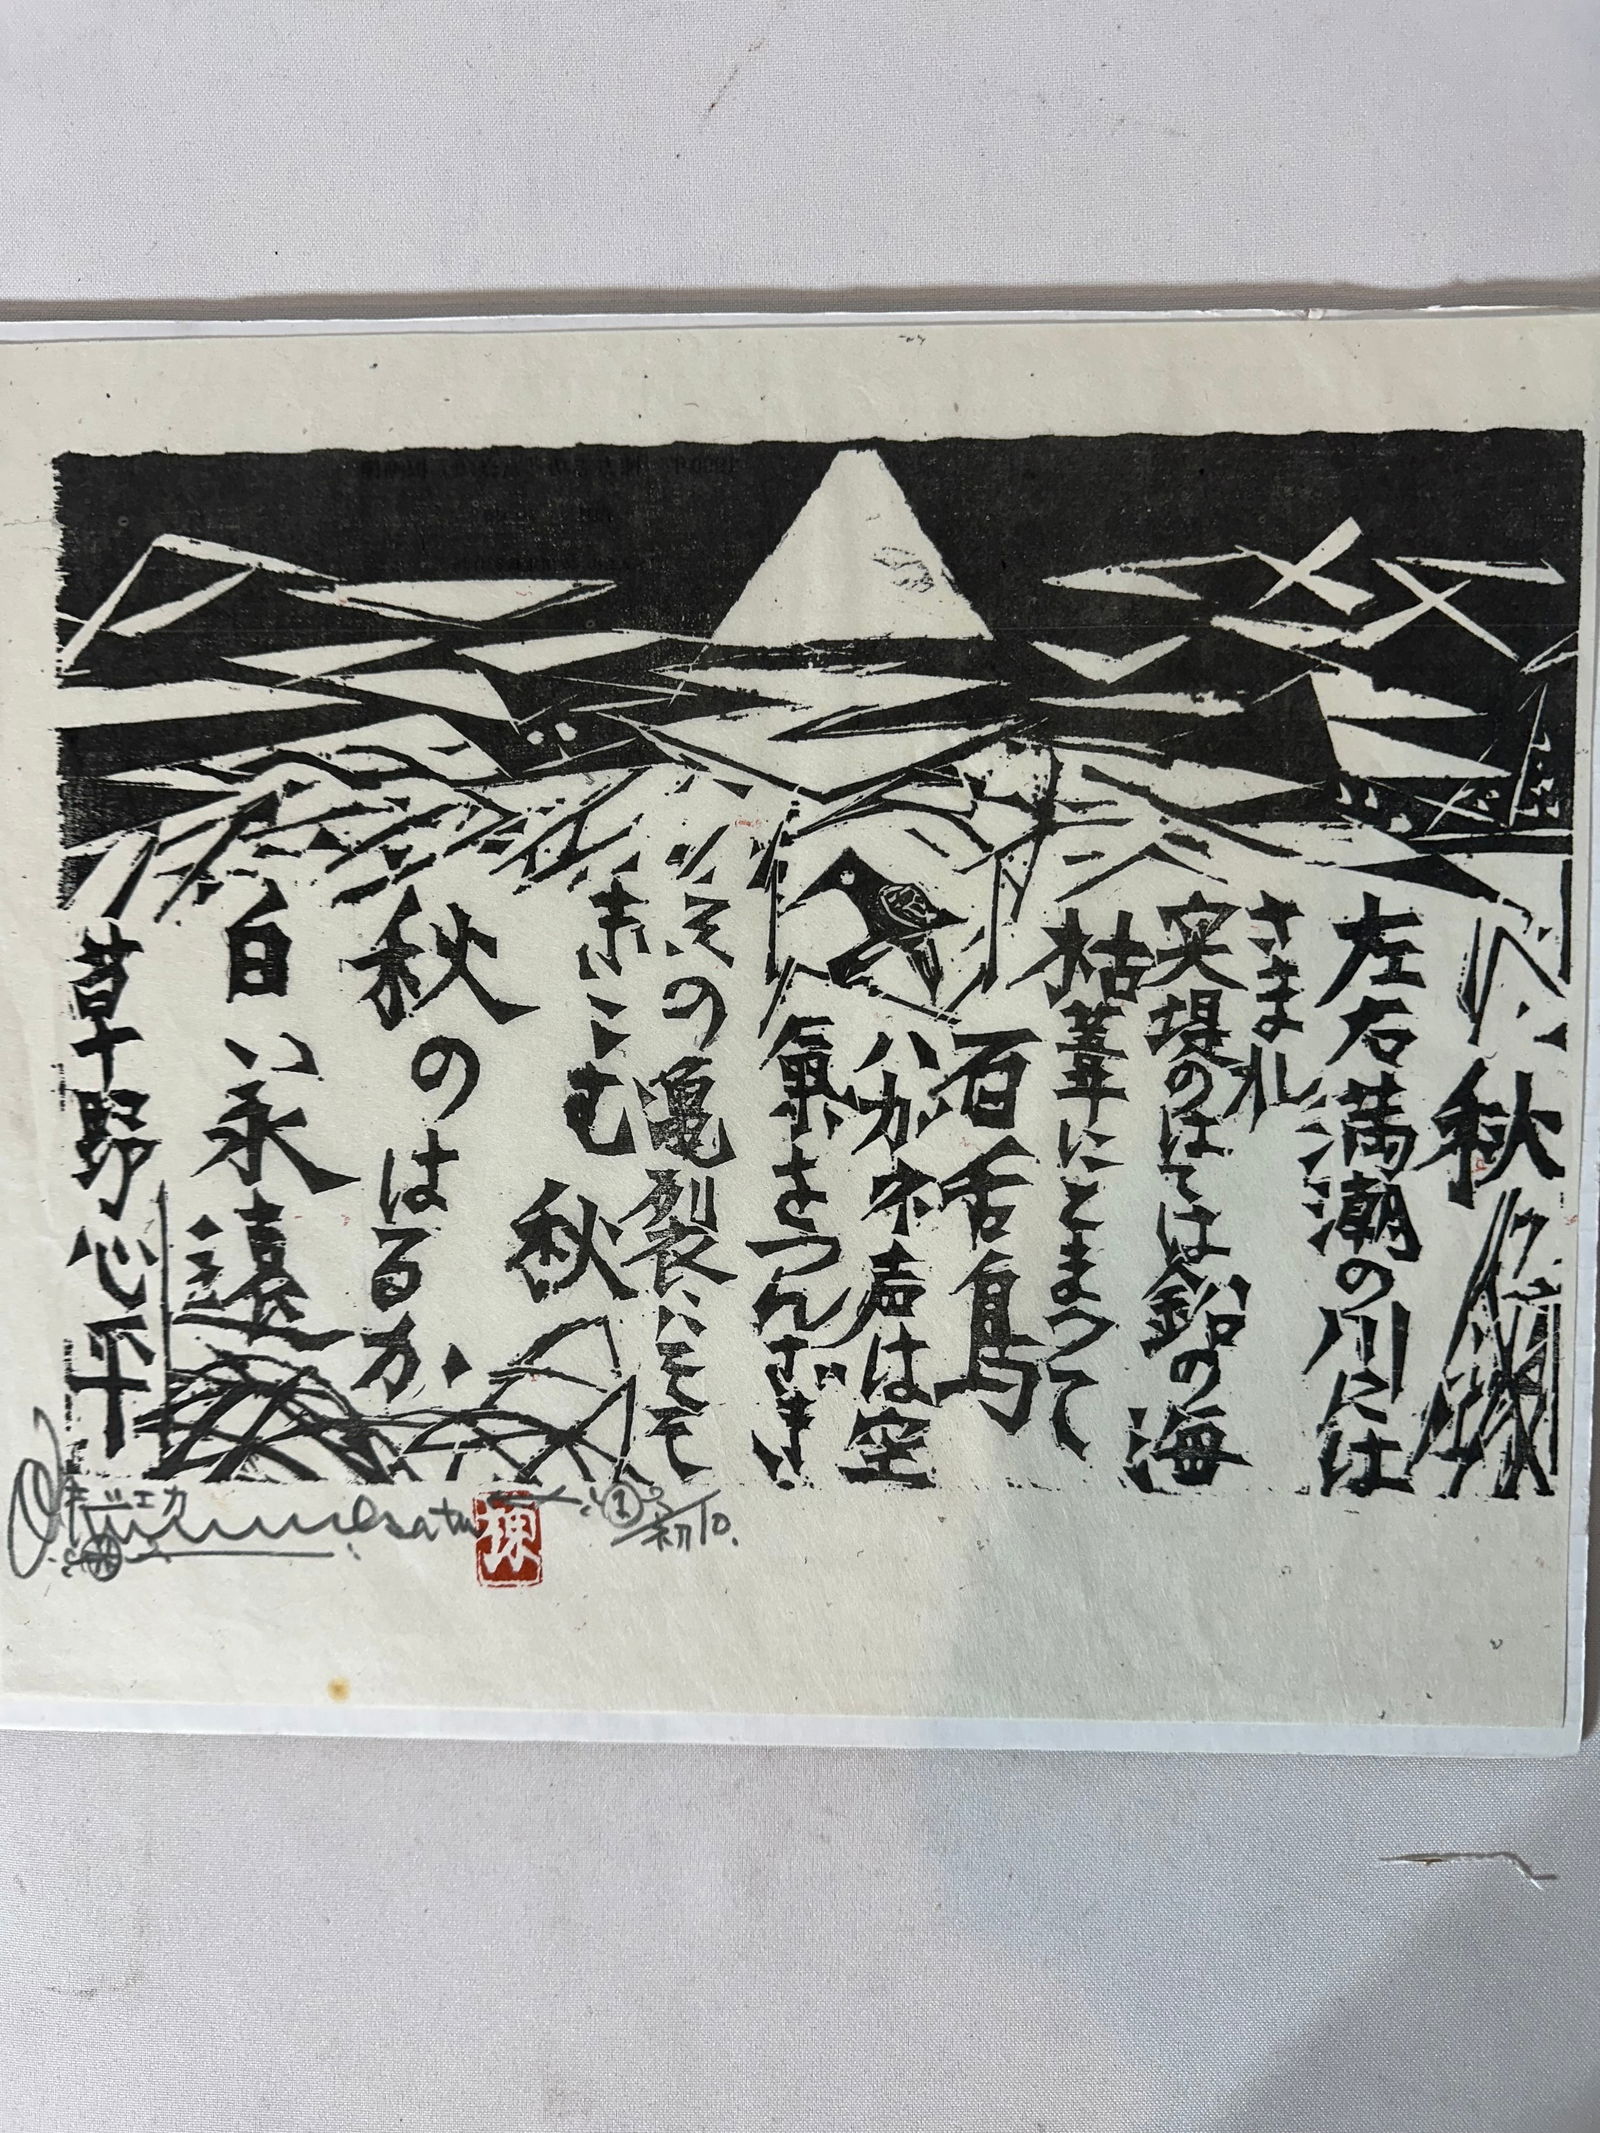 秋
左右満潮の川には
さまれ
突堤のはては鉛の海
枯葦にとまつて
百舌鳥
ハガネ声は空
氣をつんざき
その亀裂にそそ
ぎこむ 秋
秋のはるか
白い永遠
草野心平
初/10.